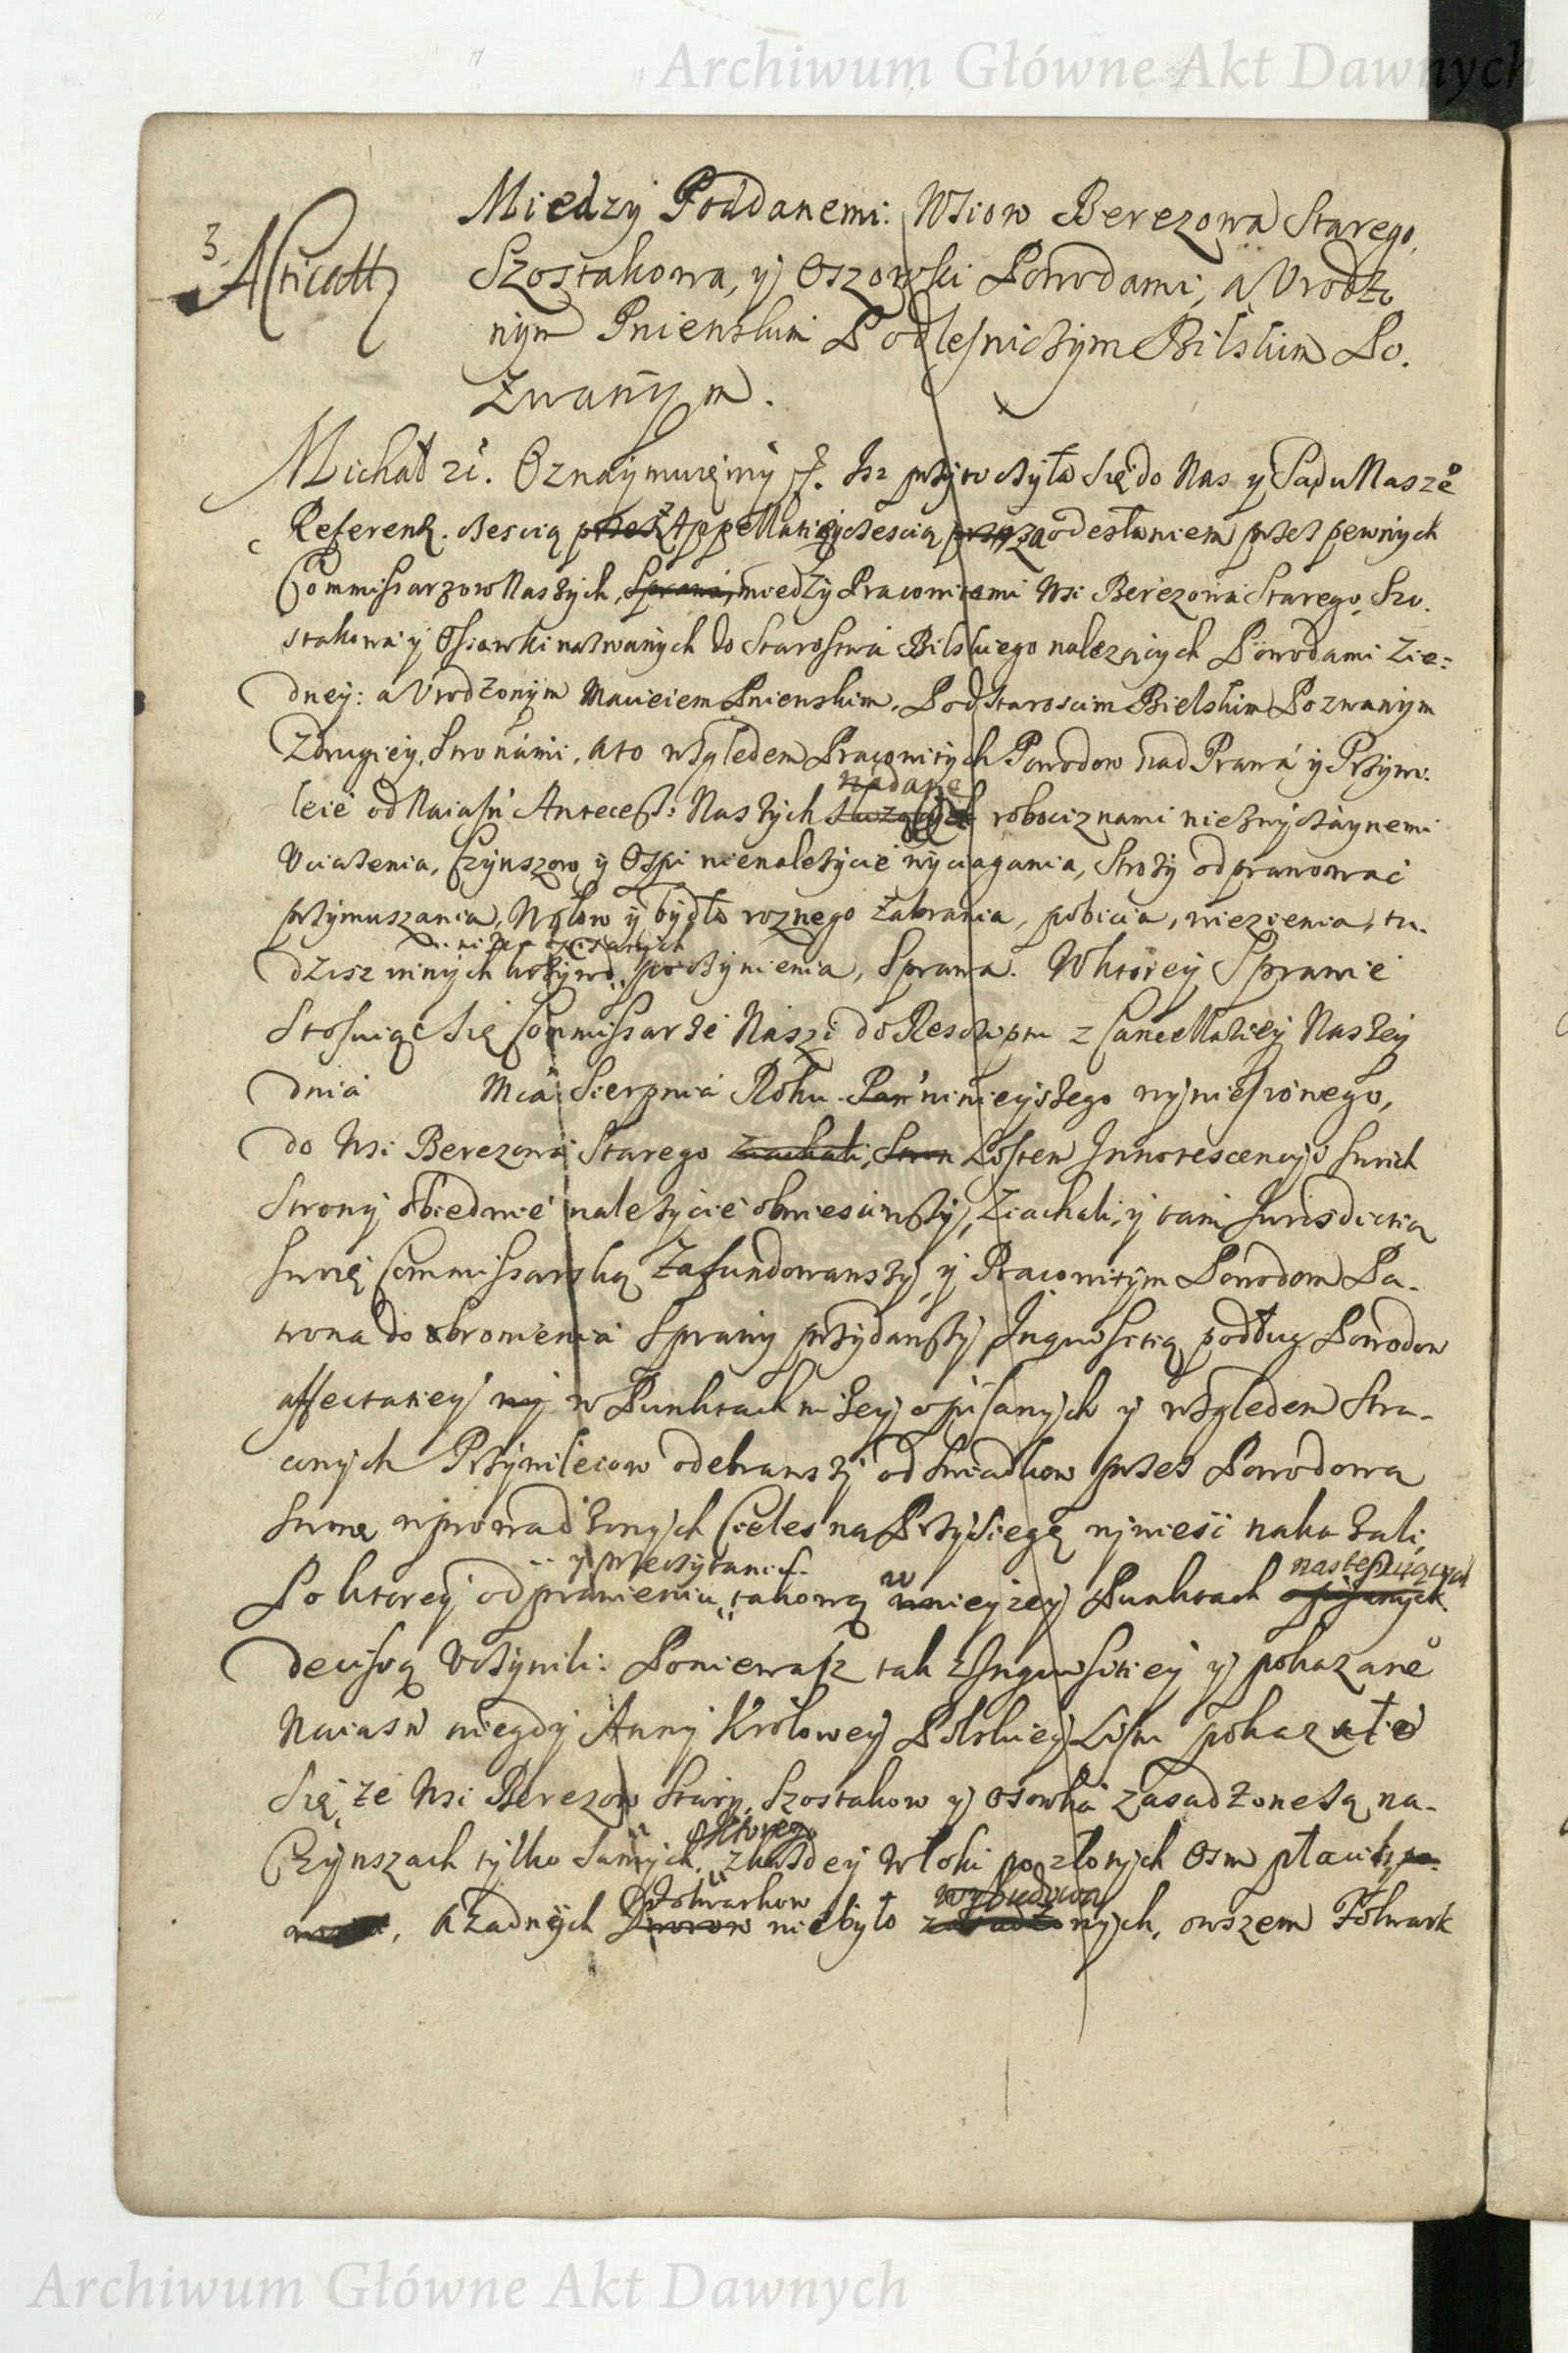 Archiwum Główne Akt Dawnych
Między Poddanemi Wsiow Berezowa Starego,
3.
Szostakowa, y Oszowki Powodami, a Vrodzo
nym Pnienskim Podlesniczym Bilskim Po.
zwanym.
Michał zi. Oznaymuięmy Isz przytoczyła się do Nas y Sądu Nasze
Referen. częscią przez z Appellatiey częscią przez za odesłaniem przez pewnych
Commissarzow Naszych, Sprawa, między Pracowitemi Wsi Berezowa Starego, Szo.
stakowa y Osiawki nazwanych do Starostwa Bilskiego należących Powodami z ie-
dney: a Vrodzonym Macieiem Pnienskim, Podstaroscim Bielskim Pozwanym
z drugiey, Stronami, a to względem Pracowitych Powodow nad Prawa y Przywi.
nadane
leie od Naiaśń Antecess: Naszych służących robociznami niezwyczaynemi
Vciążenia, Czynszow y Ospi nienależycie wyciągania, Stroży odprawować
przymuszania, Wołow y bydła roznego zabrania, pobicia, więzienia, tu.
niżey opisanych
dziesz innych krzywd poczynienia, Sprawa. W ktorey Sprawie
Stosuiąc się Commissarze Naszi do Rescriptu z Cancellariey Naszey
dnia Mca Sierpnia Roku Pań ninieyszego wyniesionego,
do Wsi Berezowa Starego ziachali, Stron Listem Innotescencyi swich
Strony obiedwie należycie obwiesciwszy, ziachali, y tam Jurisdictią
swoię Commissarską zafundowawszy, y Pracowitym Powodom Pa-
trona do obronienia Sprawy przydawszy Inquisitią podług Powodow
affectatiey wy w Punktach niżey opisanych y względem Stra-
conych Przywileiow odebrawszy od swiadkow przez Powodową
stronę wprowadzonych Cielesną Przysięgę wynieść nakazali,
y przeczytaniu
Po ktorey odprawieniu, takową w wnieyszey Punktach następuiących opisanych
decisyą vczynili: Poniewasz tak z Inquisitiey y pokazane
Naiaśń niegdy Anny Krolowey Polskiey Listu pokazało
się, że Wsi Berezow Stary, Szostakow y Osowka zasadzone są na-
z ktorego
Czynszach tylko samych, z każdey włoki po złotych Osm płacić po-
Folwarkow wybudowa
, a żadnych Dworow nie było zasadzonych, owszem Folwark
Archiwum Główne Akt Dawnych